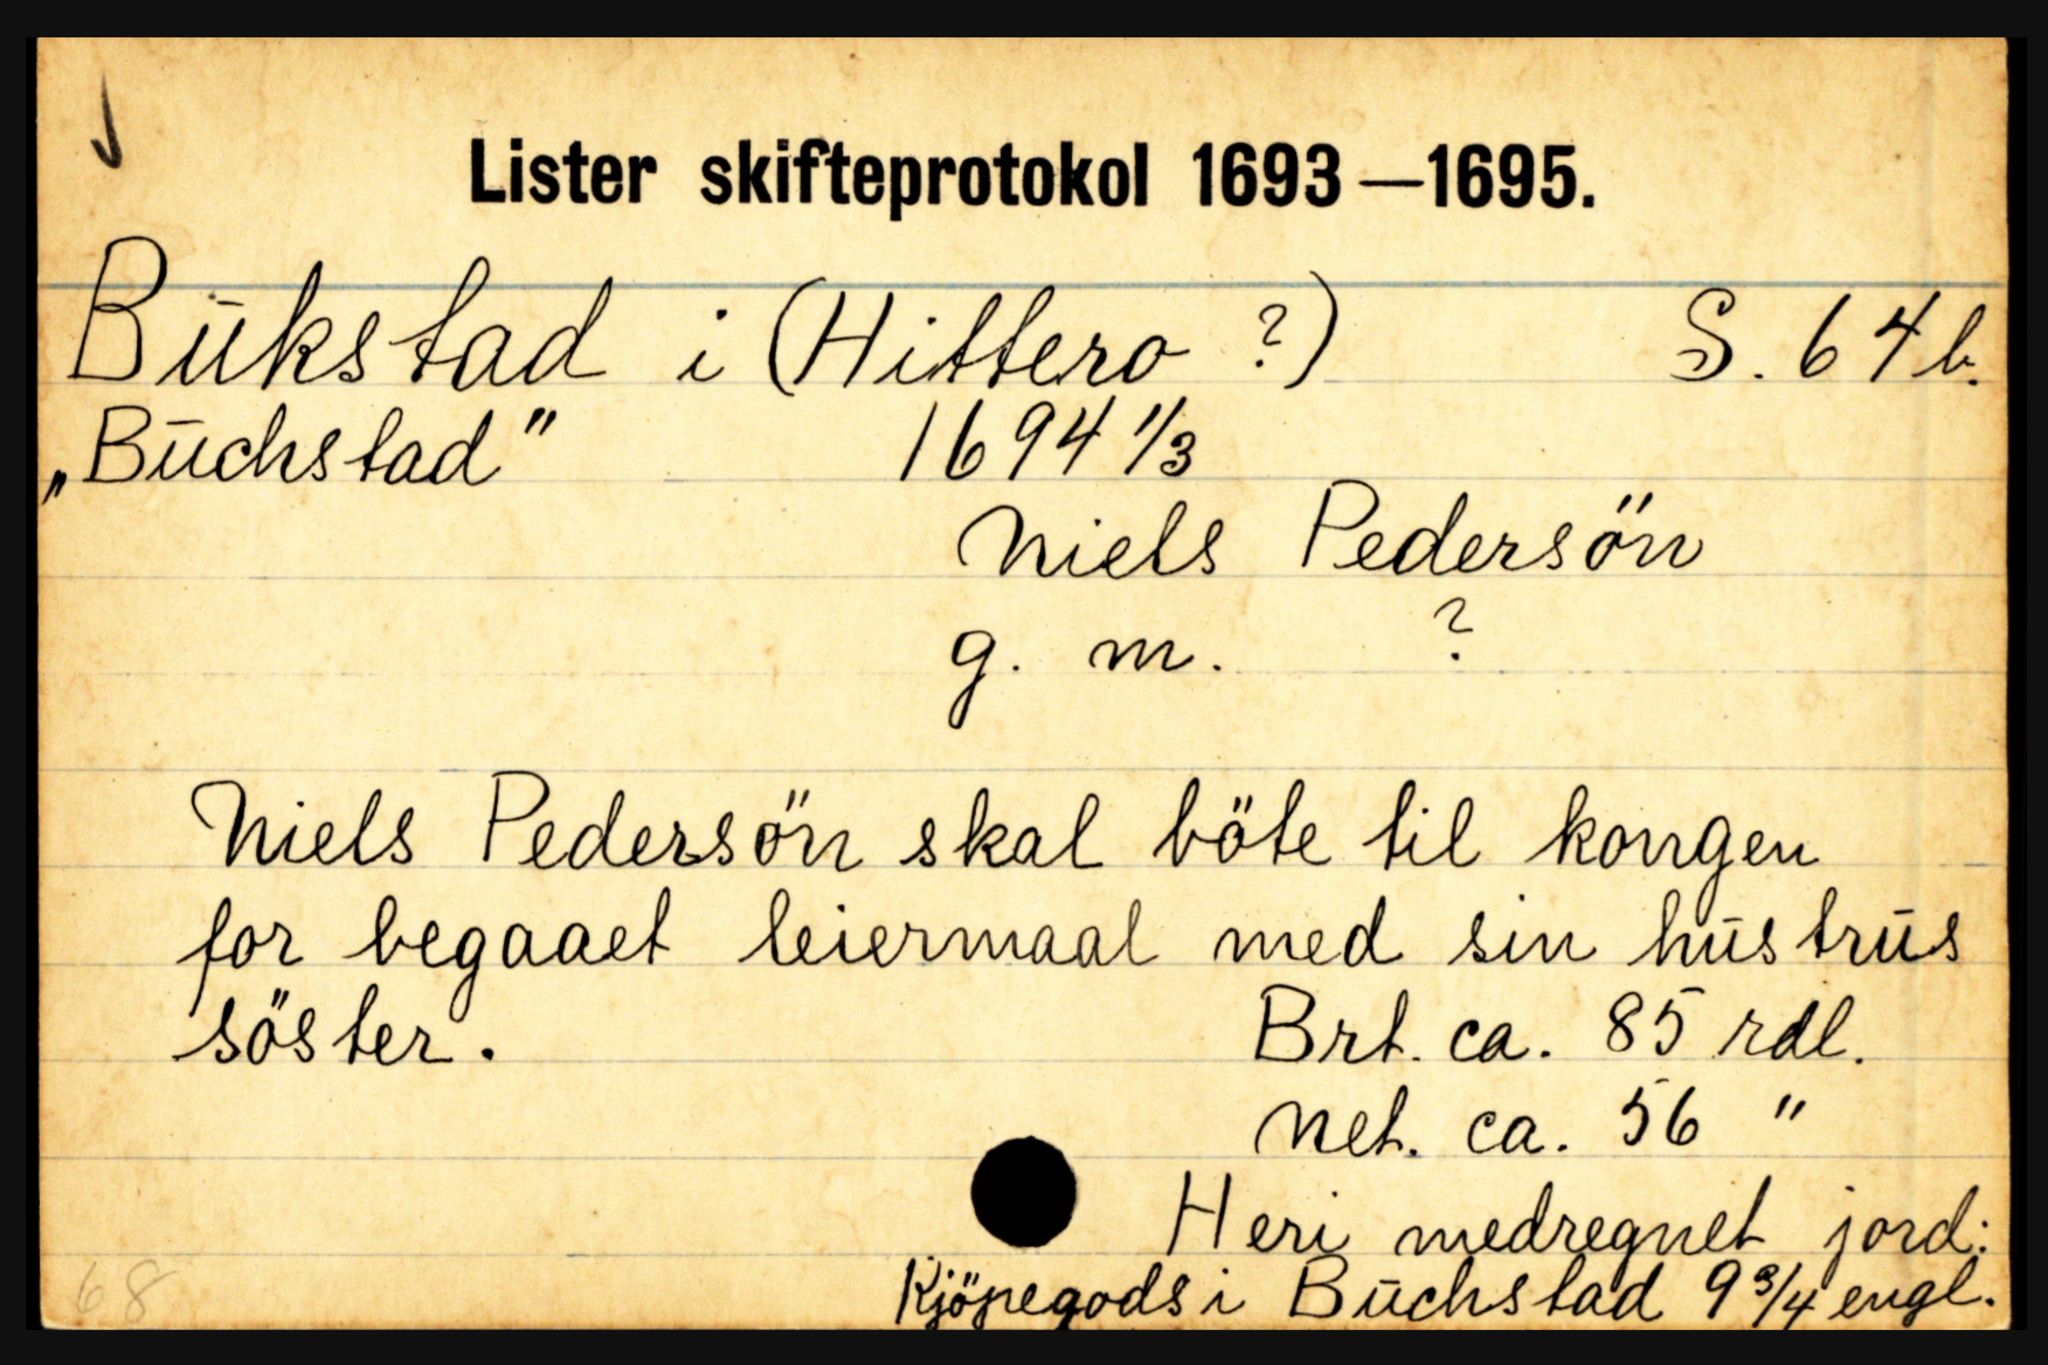 Lister skifteprotokol 1693—1695.
Būkstad i (Hittero ?) S. 64 b.
„Būchstad" 1694 1/3
Niels Pedersön
g. m. ?
Niels Pedersön skal böte til kongen
for begaaet leiermaal med sin hūstrūs
söster. Brt. ca. 85 rdl.
Net. ca. 56 "
Heri medregnet jord:
Kjöpegods i Būchstad 9 3/4 engl.
68